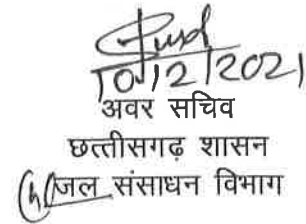 10/12/2021
अवर सचिव
छत्तीसगढ़ शासन
जल संसाधन विभाग